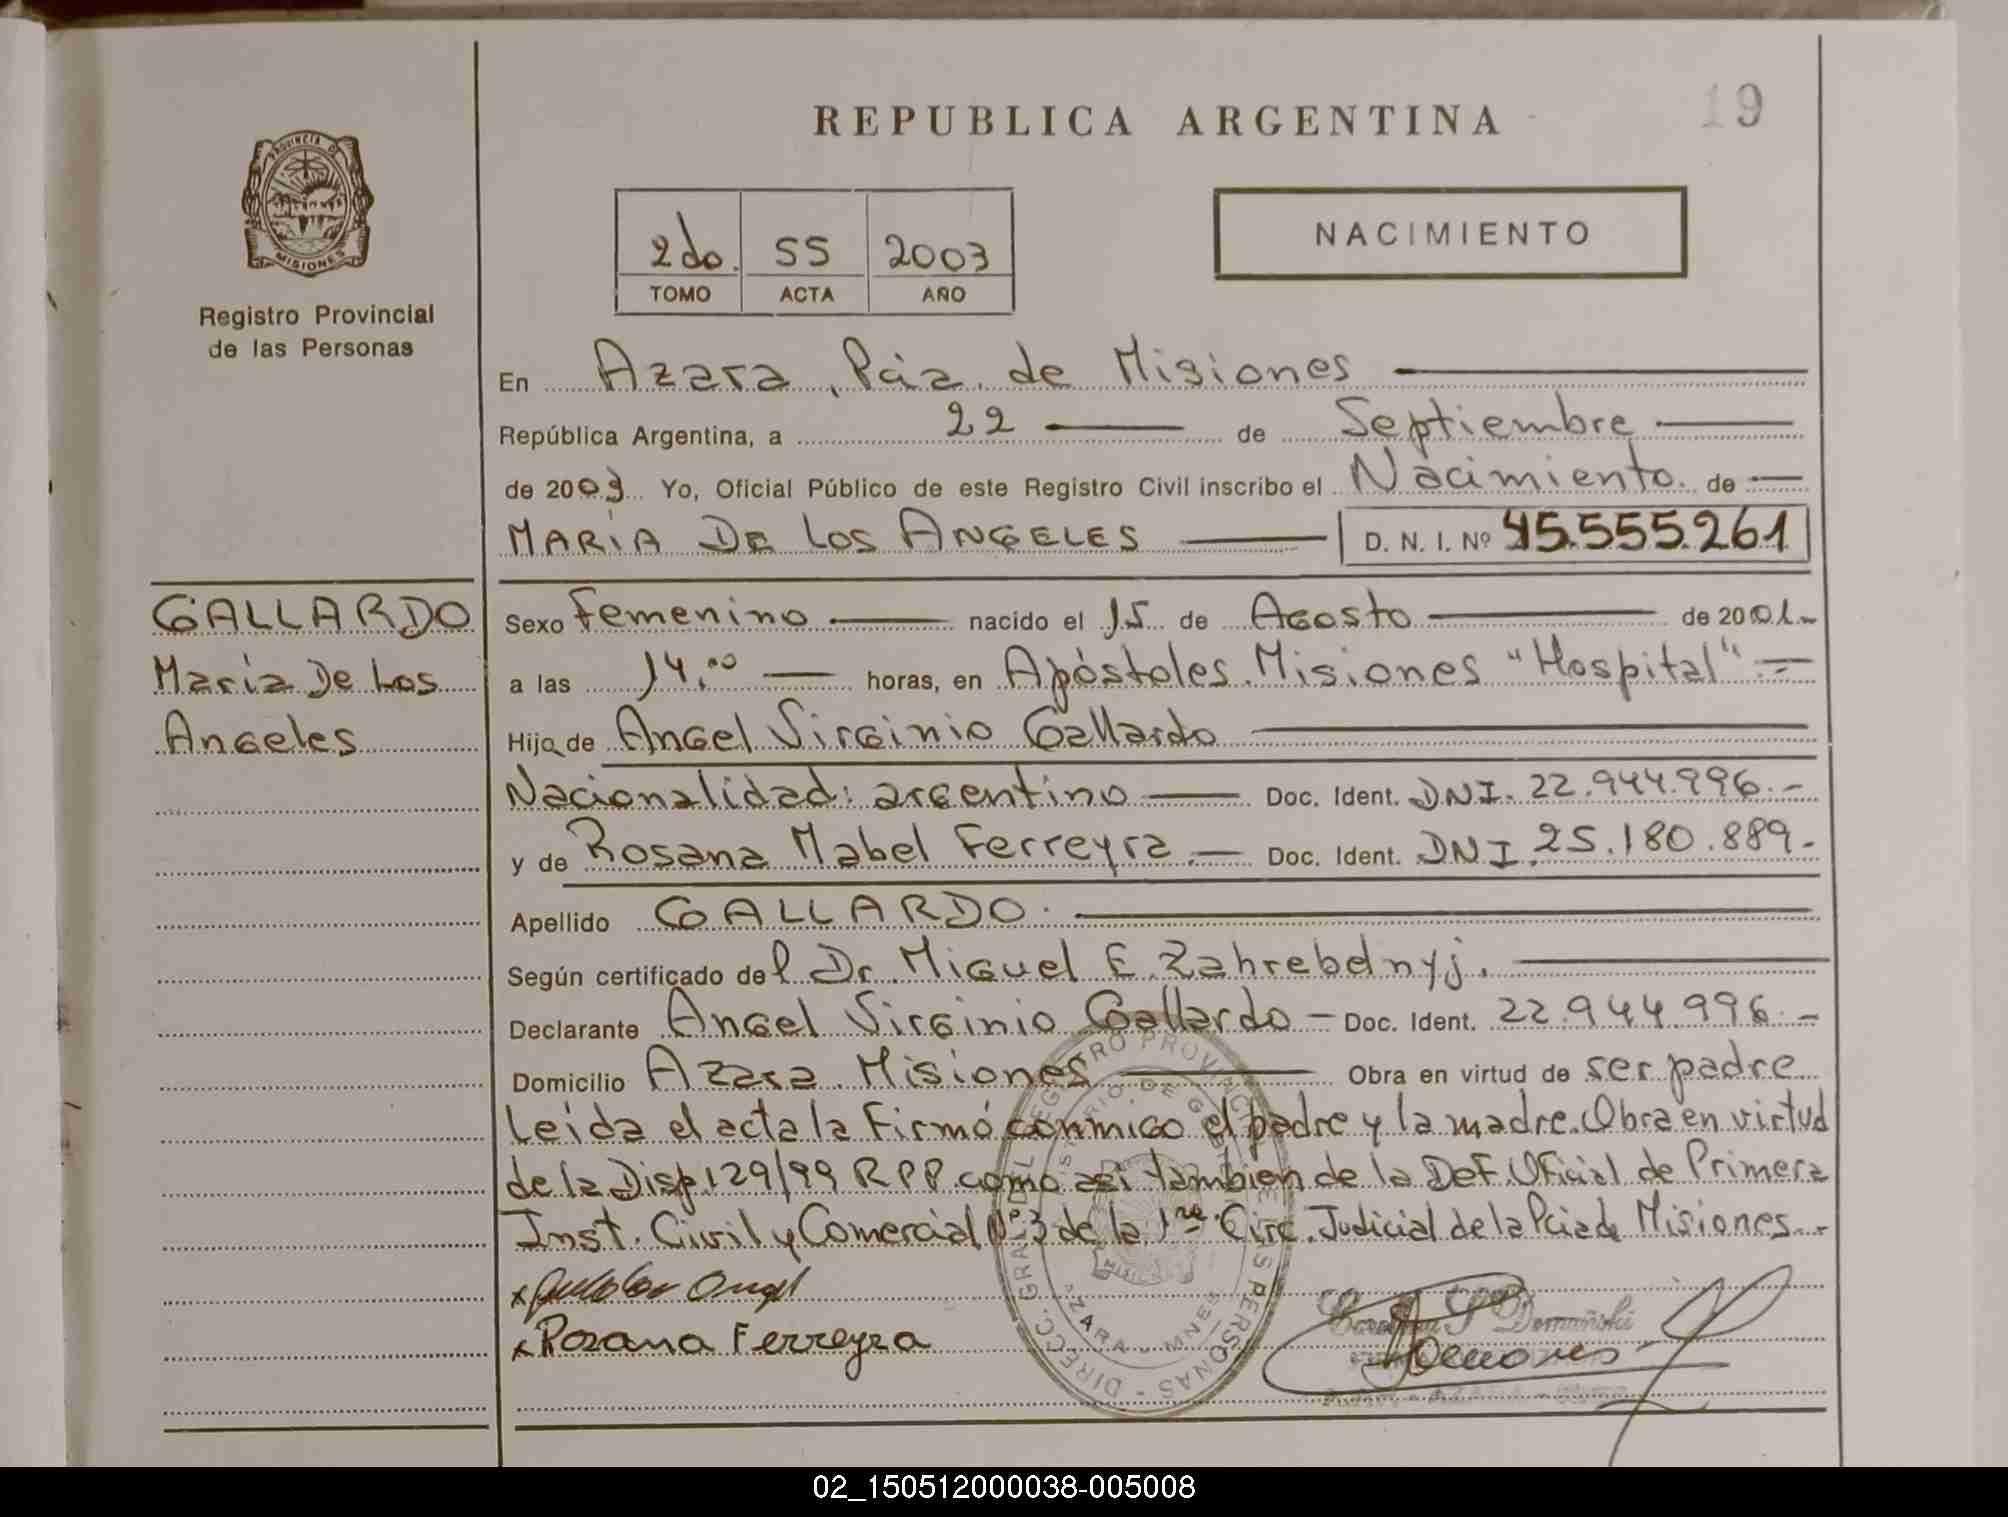 REPUBLICA ARGENTINA
19
PROVINCIA DE
MISIONES
Registro Provincial
de las Personas
2do. 55 2003
TOMO ACTA AÑO
NACIMIENTO
En Azara, Pcia. de Misiones
República Argentina, a 22 de Septiembre
de 2003 Yo, Oficial Público de este Registro Civil inscribo el Nacimiento de
MARÍA DE LOS ANGELES D. N. I. Nº 45.555.261
GALLARDO
María De Los
Angeles
Sexo Femenino nacido el 15 de Agosto de 2001.-
a las 14,00 horas, en Apóstoles Misiones "Hospital"
Hija de Angel Virginio Gallardo
Nacionalidad: argentino Doc. Ident. DNI. 22.944.996.-
y de Rosana Mabel Ferreyra Doc. Ident. DNI. 25.180.889.-
Apellido GALLARDO.
Según certificado del Dr. Miguel E. Zahrebelnyj.
Declarante Angel Virginio Gallardo - Doc. Ident. 22.944.996.-
Domicilio Azara Misiones Obra en virtud de ser padre
Leída el acta la Firmó conmigo el padre y la madre. Obra en virtud
de la Disp. 129/99 RPP. como así tambien de la Def. Oficial de Primera
Inst. Civil y Comercial Nº 3 de la 1ra Circ. Judicial de la Pcia de Misiones.-
x Gallardo Angel
x Rosana Ferreyra
DIRECC. GRAL. DEL REGISTRO PROVINCIAL DE LAS PERSONAS
AZARA - MNES
02_150512000038-005008